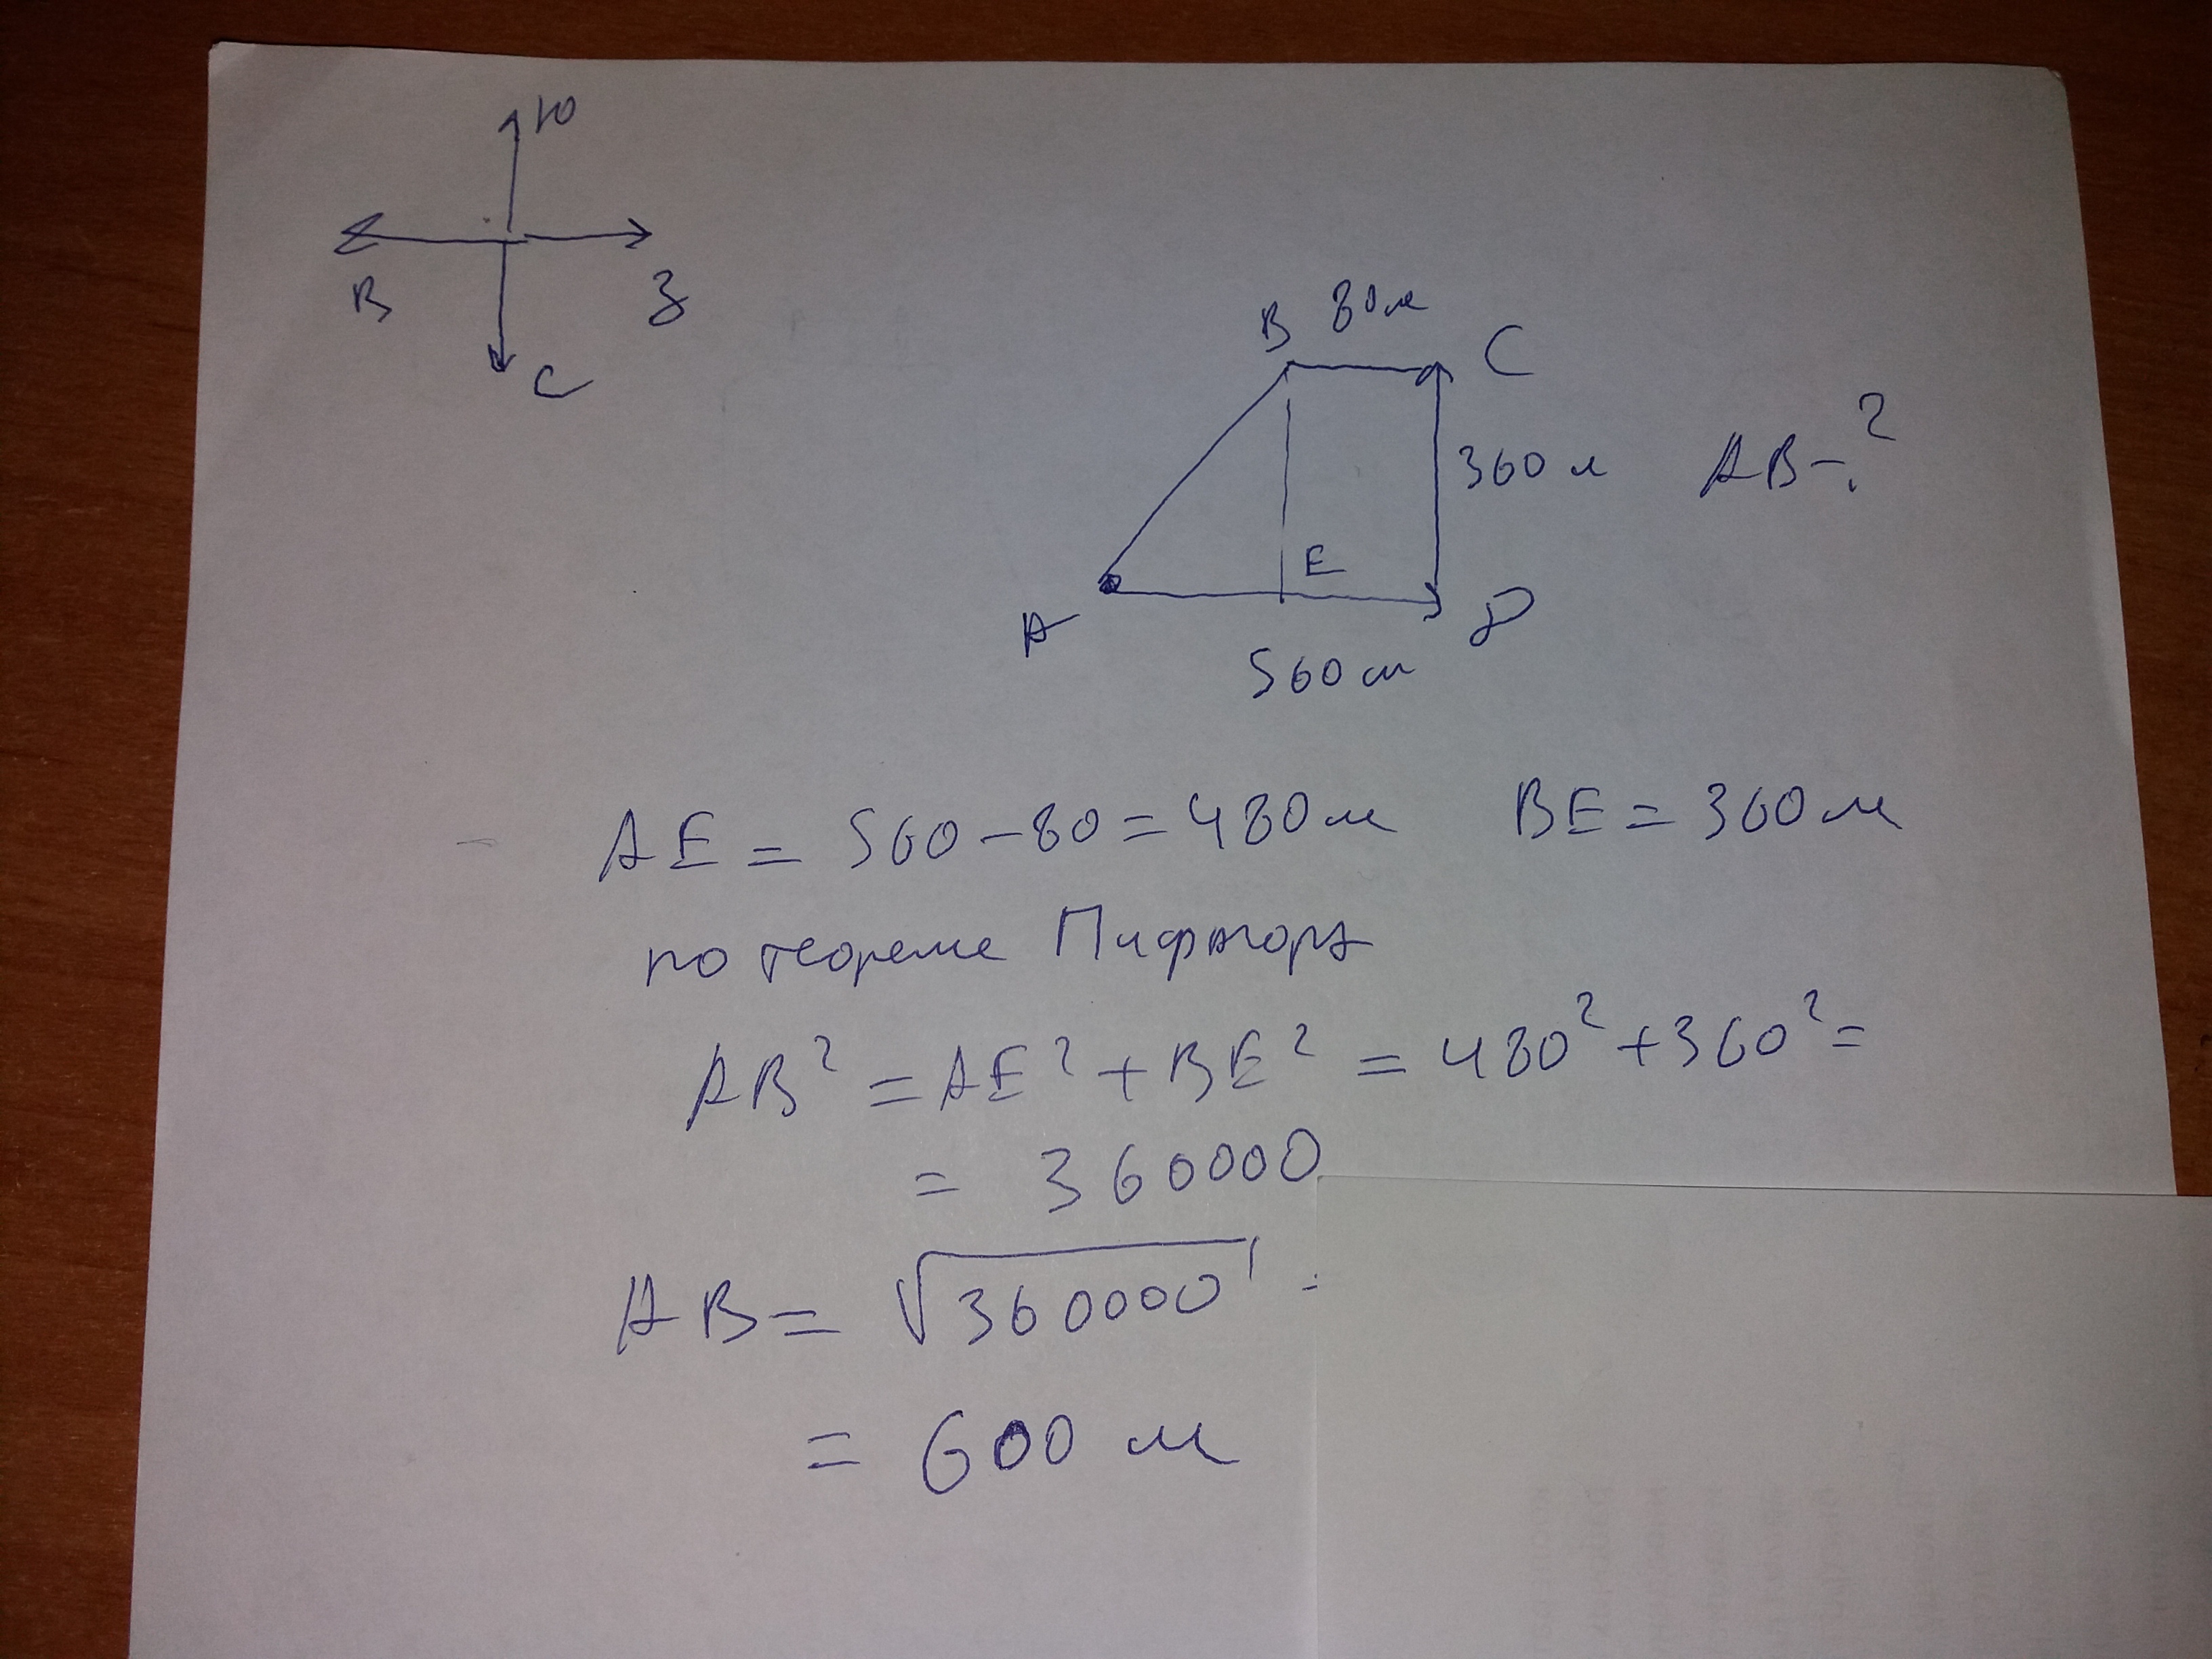 Ю
В
З
С
B 80м C
360 м
AB-?
E
A
D
560 м
AE = 560 - 80 = 480 м BE = 360 м
по теореме Пифагора
AB² = AE² + BE² = 480² + 360² =
= 360000
AB = √360000 =
= 600 м